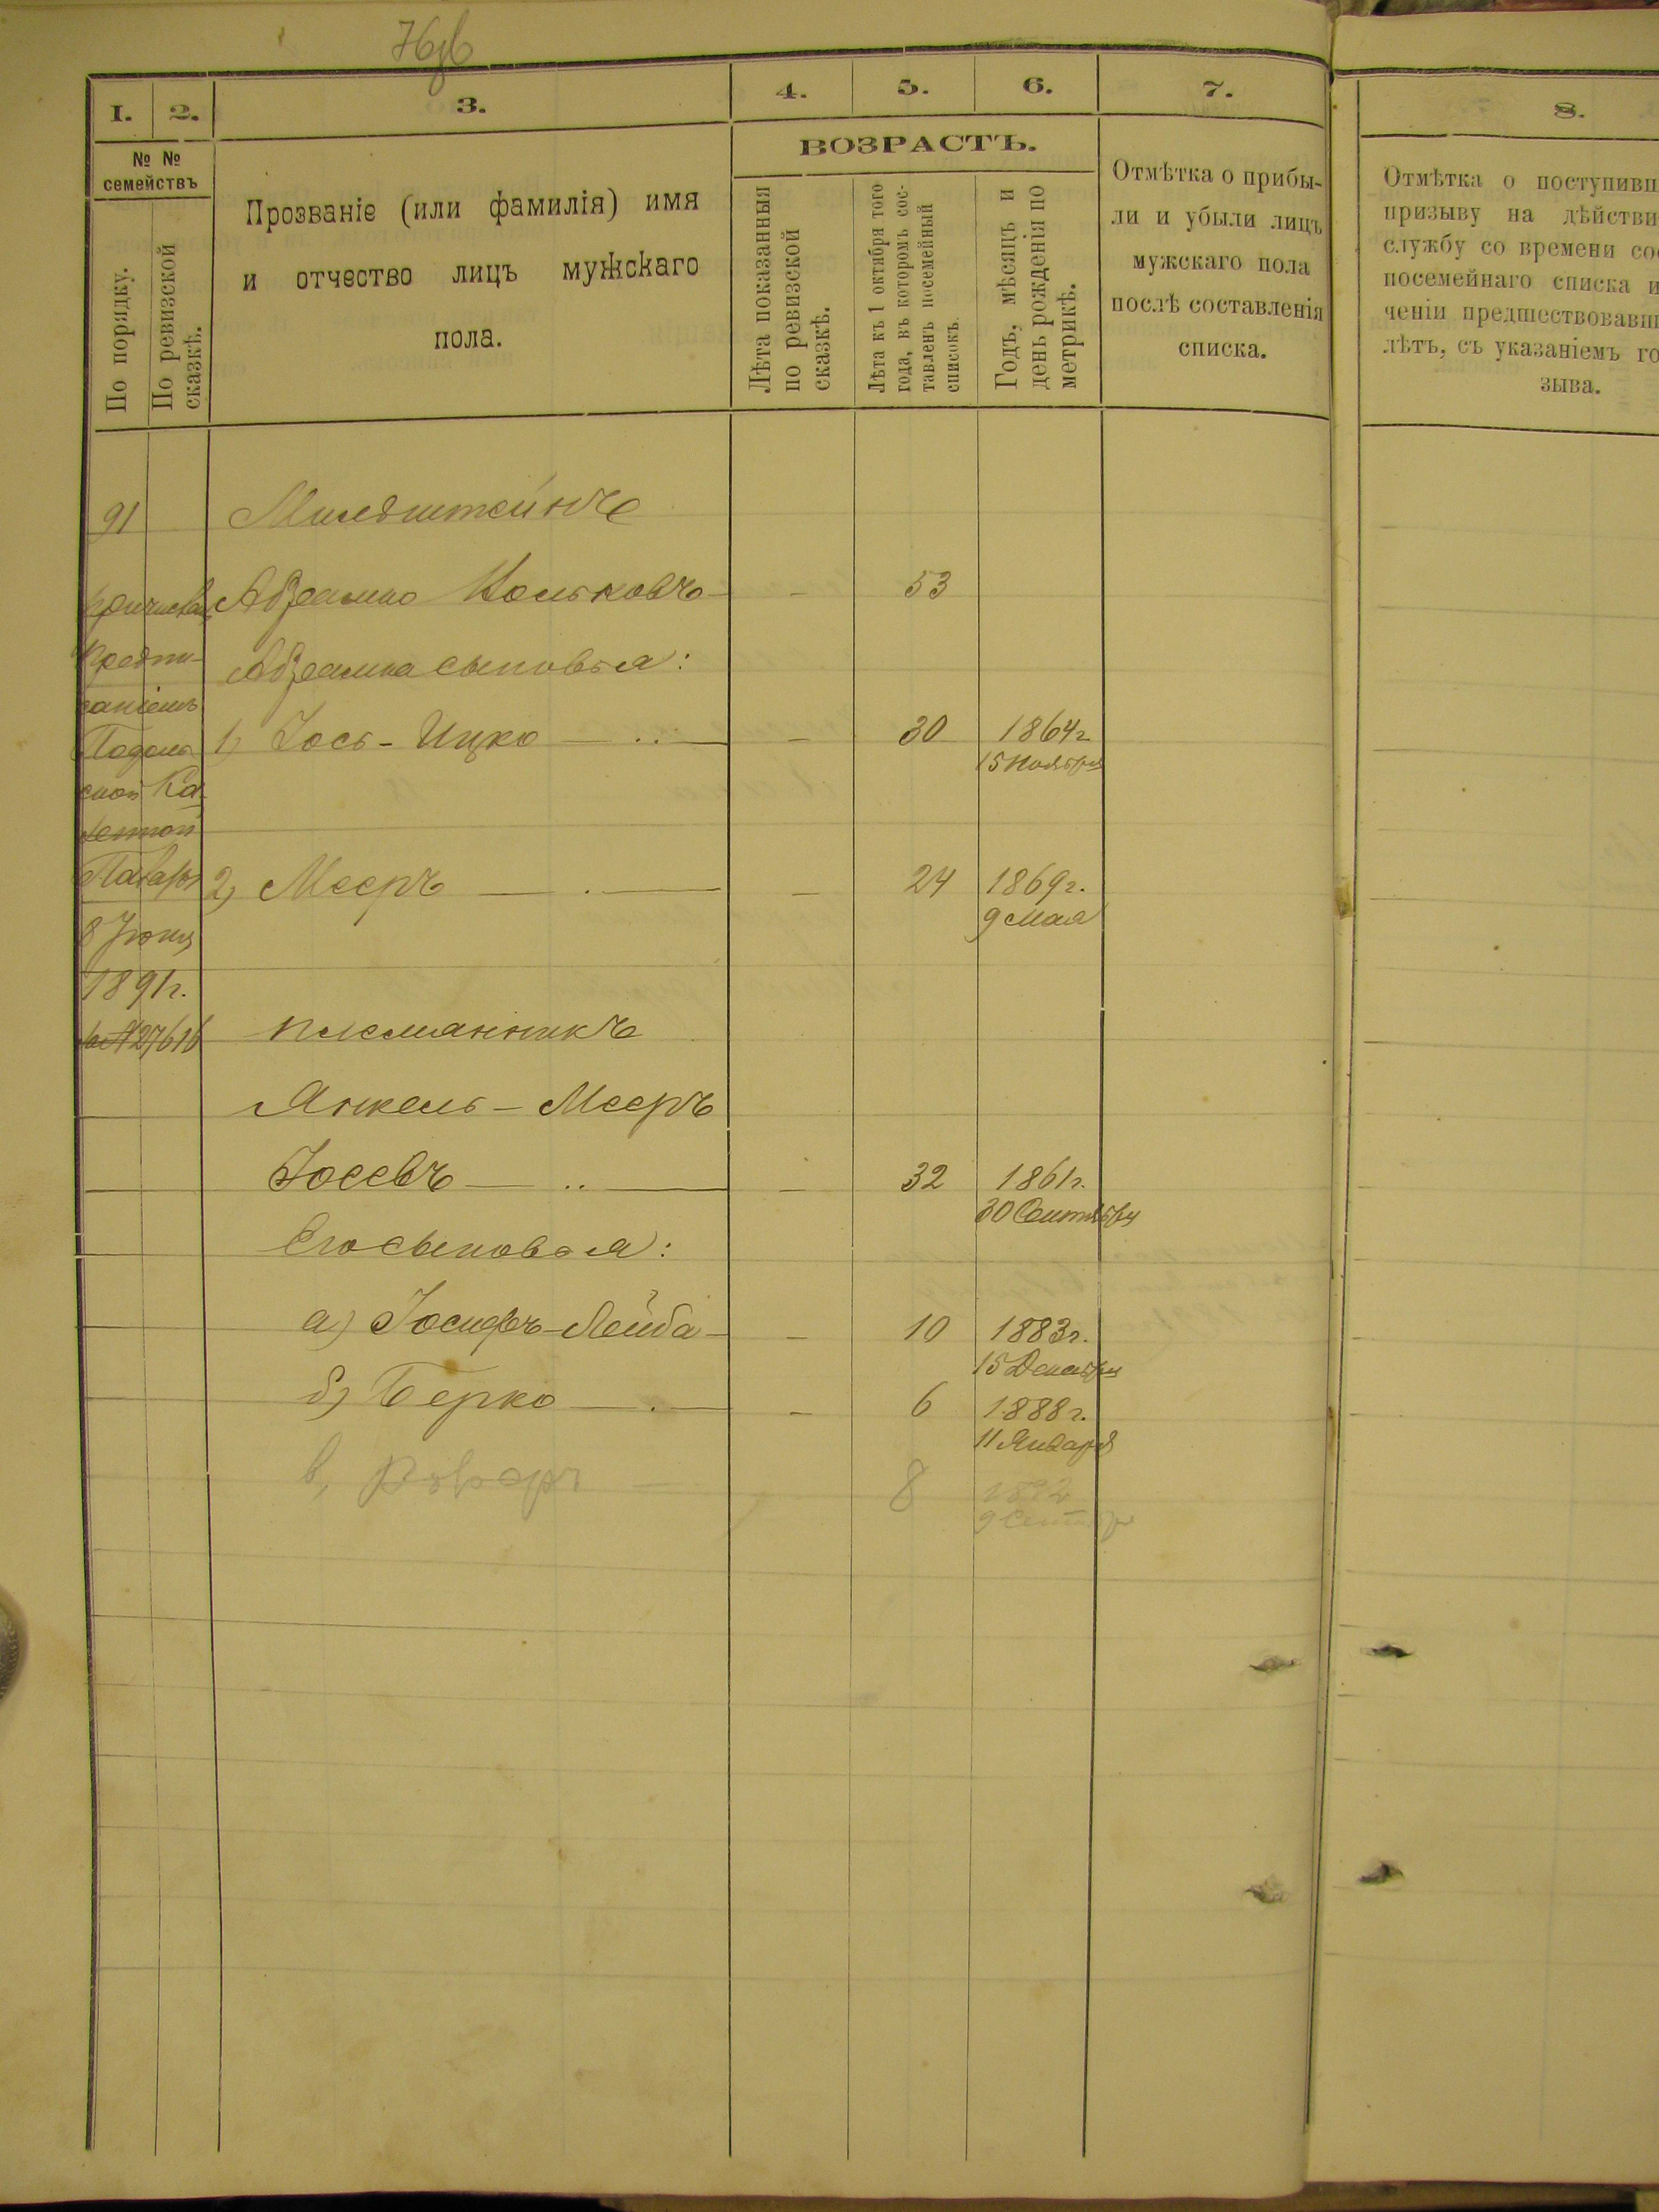 76об
1. 2. 3. 4. 5. 6. 7.
№ №
семействъ
По порядку.
По ревизской
сказкѣ.
Прозваніе (или фамилія) имя
и отчество лицъ мужскаго
пола.
ВОЗРАСТЪ.
Лѣта показанныя
по ревизской
сказкѣ.
Лѣта къ 1 октября того
года, въ которомъ сос-
тавленъ посемейный
списокъ.
Годъ, мѣсяцъ и
день рожденія по
метрикѣ.
Отмѣтка о прибы-
ли и убыли лицъ
мужскаго пола
послѣ составленія
списка.
8.
Отмѣтка о поступивш
призыву на дѣйстви
службу со времени со
посемейнаго списка и
ченіи предшествовавш
лѣтъ, съ указаніемъ го
зыва.
91 Мильштейнъ
Абрамко 53
Абрамка сыновья:
1) Іось-Ицко — 30 1864г.
15 Ноября
2) Мееръ — 24 1869г.
9 Мая
племянникъ
Янкель-Мееръ
Іосевъ — 32 1861г.
30 Сентября
Его сыновья:
а) Іосифъ-Лейба — 10 1883г.
15 Декабря
б) Берко — 6 1888г.
11 Января
в, 8
9
предпи-
саніемъ
Подоль
ской Ка
зенной
Палаты
8 Іюня
1891г.
за №27616